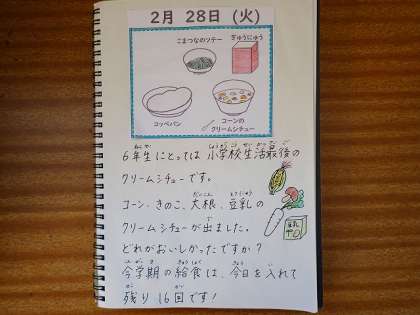 2月 28日 (火)
こまつなのソテー
ぎゅうにゅう
コッペパン
コーンの
クリームシチュー
6年生にとっては 小学校生活最後の
クリームシチューです。
コーン・きのこ、大根、豆乳の
クリームシチューが出ました。
どれがおいしかったですか？
今学期の給食は、今日を入れて
残り 16回です！